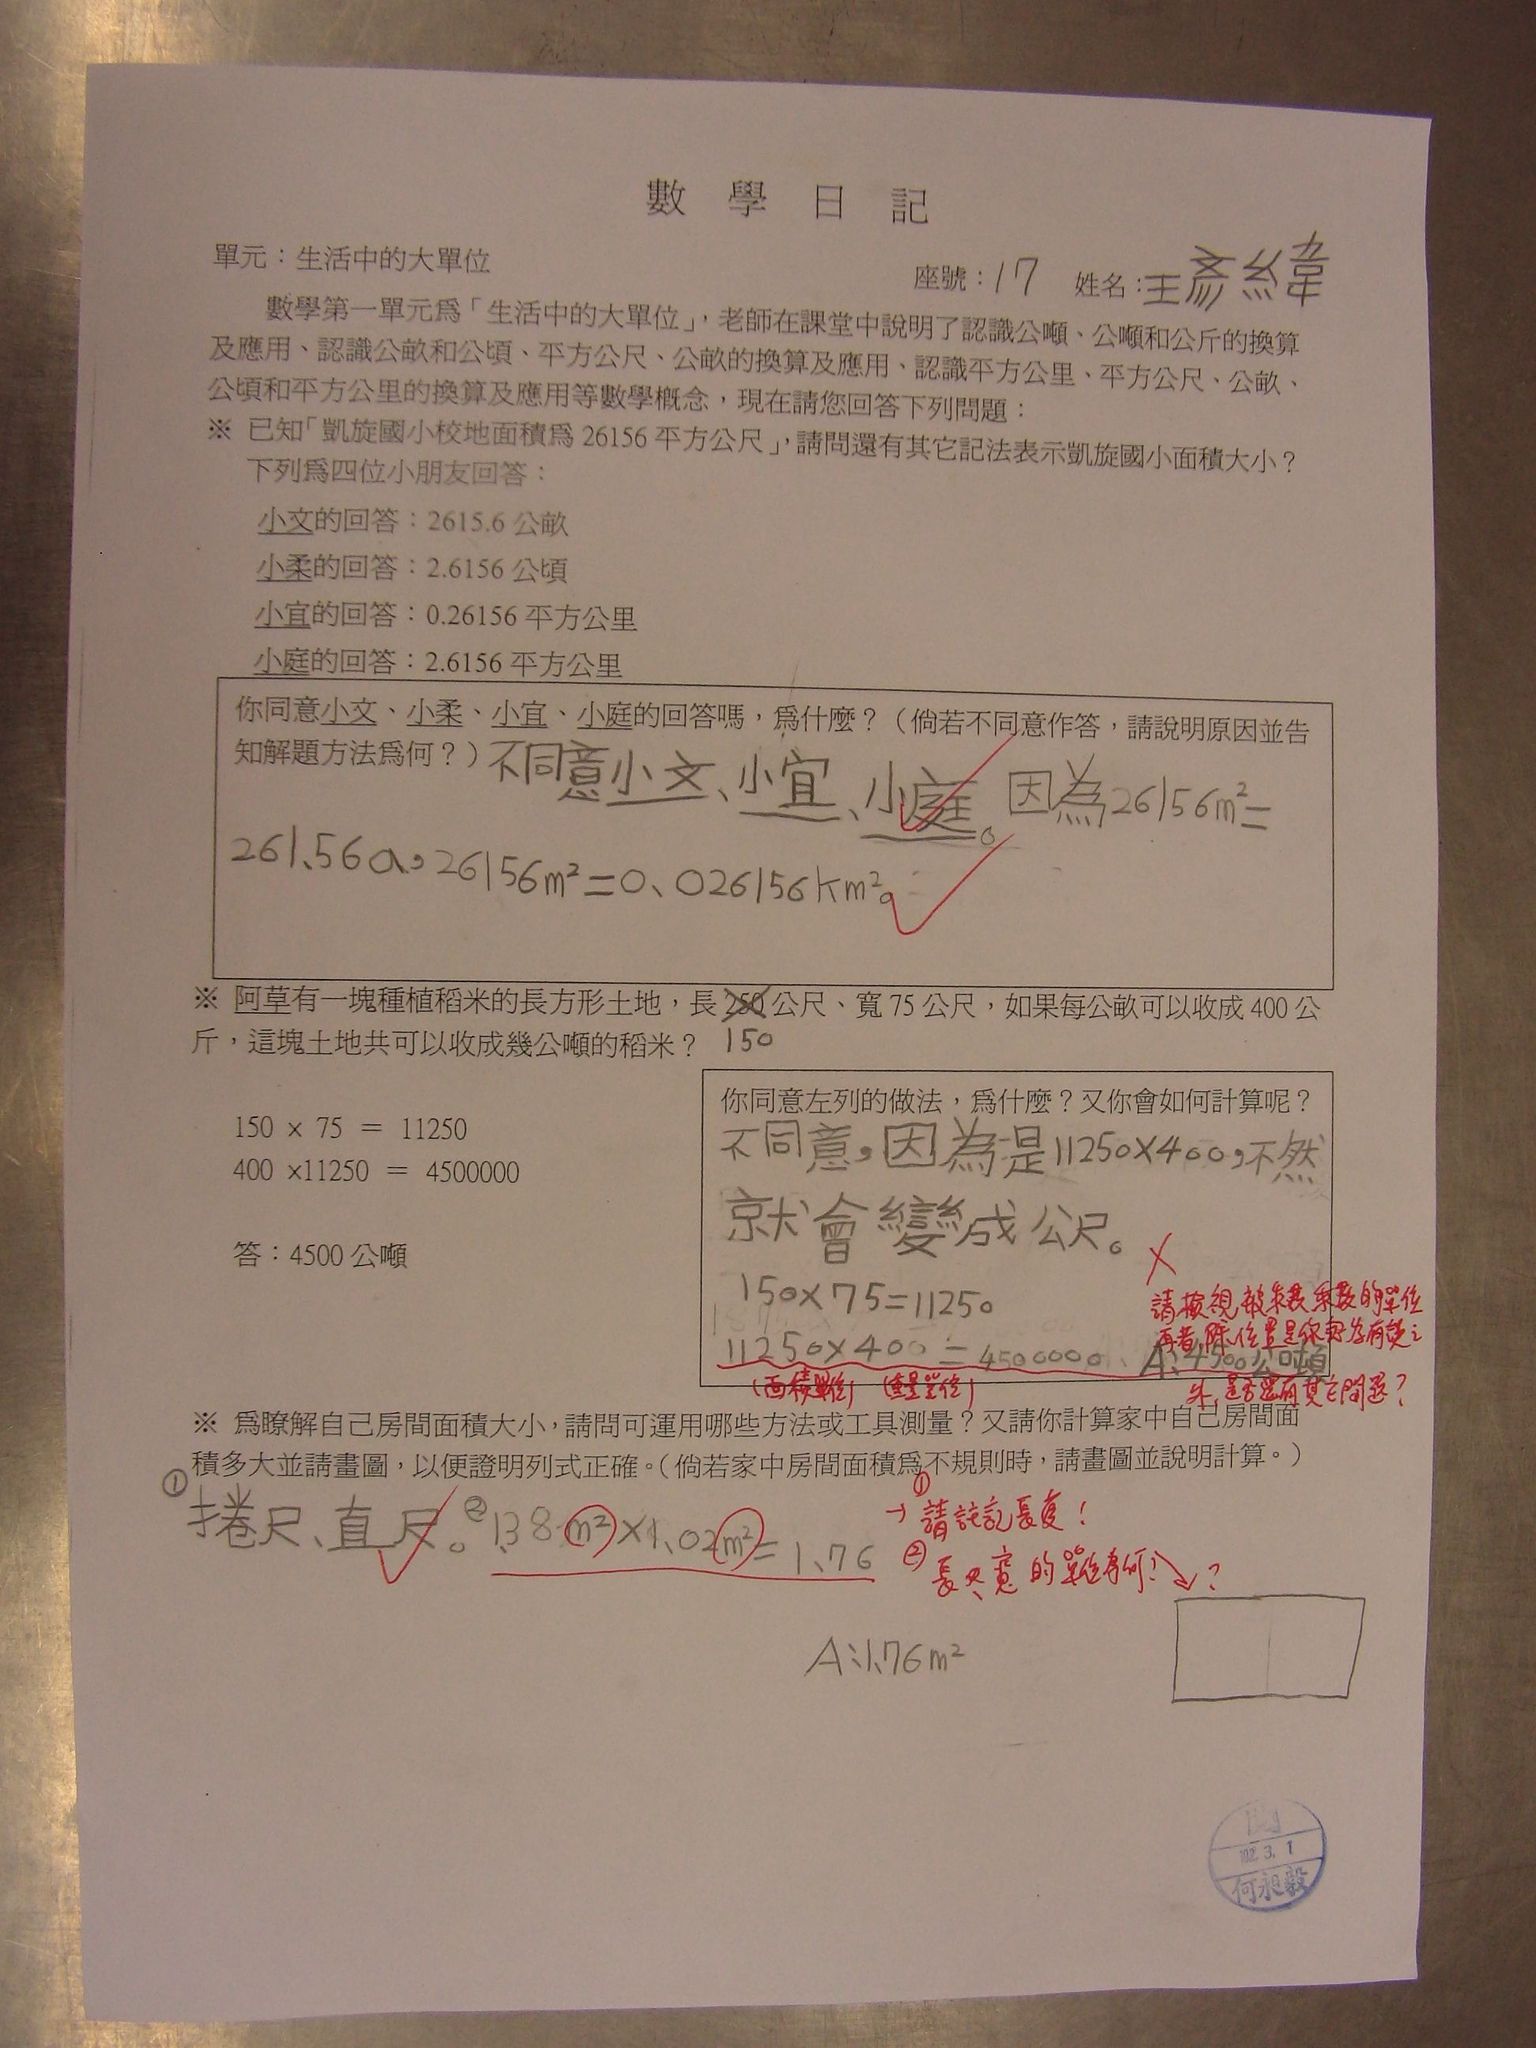 數學日記
單元：生活中的大單位
座號：17 姓名：王彥緯
數學第一單元爲「生活中的大單位」，老師在課堂中說明了認識公噸、公噸和公斤的換算
及應用、認識公畝和公頃、平方公尺、公畝的換算及應用、認識平方公里、平方公尺、公畝、
公頃和平方公里的換算及應用等數學概念，現在請您回答下列問題：
※ 已知「凱旋國小校地面積爲 26156 平方公尺」，請問還有其它記法表示凱旋國小面積大小？
下列爲四位小朋友回答：
小文的回答：2615.6 公畝
小柔的回答：2.6156 公頃
小宜的回答：0.26156 平方公里
小庭的回答：2.6156 平方公里
你同意小文、小柔、小宜、小庭的回答嗎，爲什麼？（倘若不同意作答，請說明原因並告
知解題方法爲何？）不同意小文、小宜、小庭。因為26156m²=
261.56a，26156m²=0.026156km²。
※ 阿草有一塊種植稻米的長方形土地，長 250 公尺、寬 75 公尺，如果每公畝可以收成 400 公
斤，這塊土地共可以收成幾公噸的稻米？ 150
150 × 75 = 11250
400 ×11250 = 4500000
答：4500 公噸
你同意左列的做法，爲什麼？又你會如何計算呢？
不同意，因為是11250×400，不然
就會變成公尺。
150×75=11250
11250×400=4500000 A:4500公噸
(面積單位) (重量單位)
請檢視被乘數乘數的單位
再者除位置是你認為有誤之
外，是否還有其它問題？
※ 爲瞭解自己房間面積大小，請問可運用哪些方法或工具測量？又請你計算家中自己房間面
積多大並請畫圖，以便證明列式正確。（倘若家中房間面積爲不規則時，請畫圖並說明計算。）
①捲尺、直尺。②1.38m²×1.02m²=1.76
→①請註記長度！
②長、寬的單位為何？ ？
A:1.76m²
閱
102. 3. 1
何昶毅